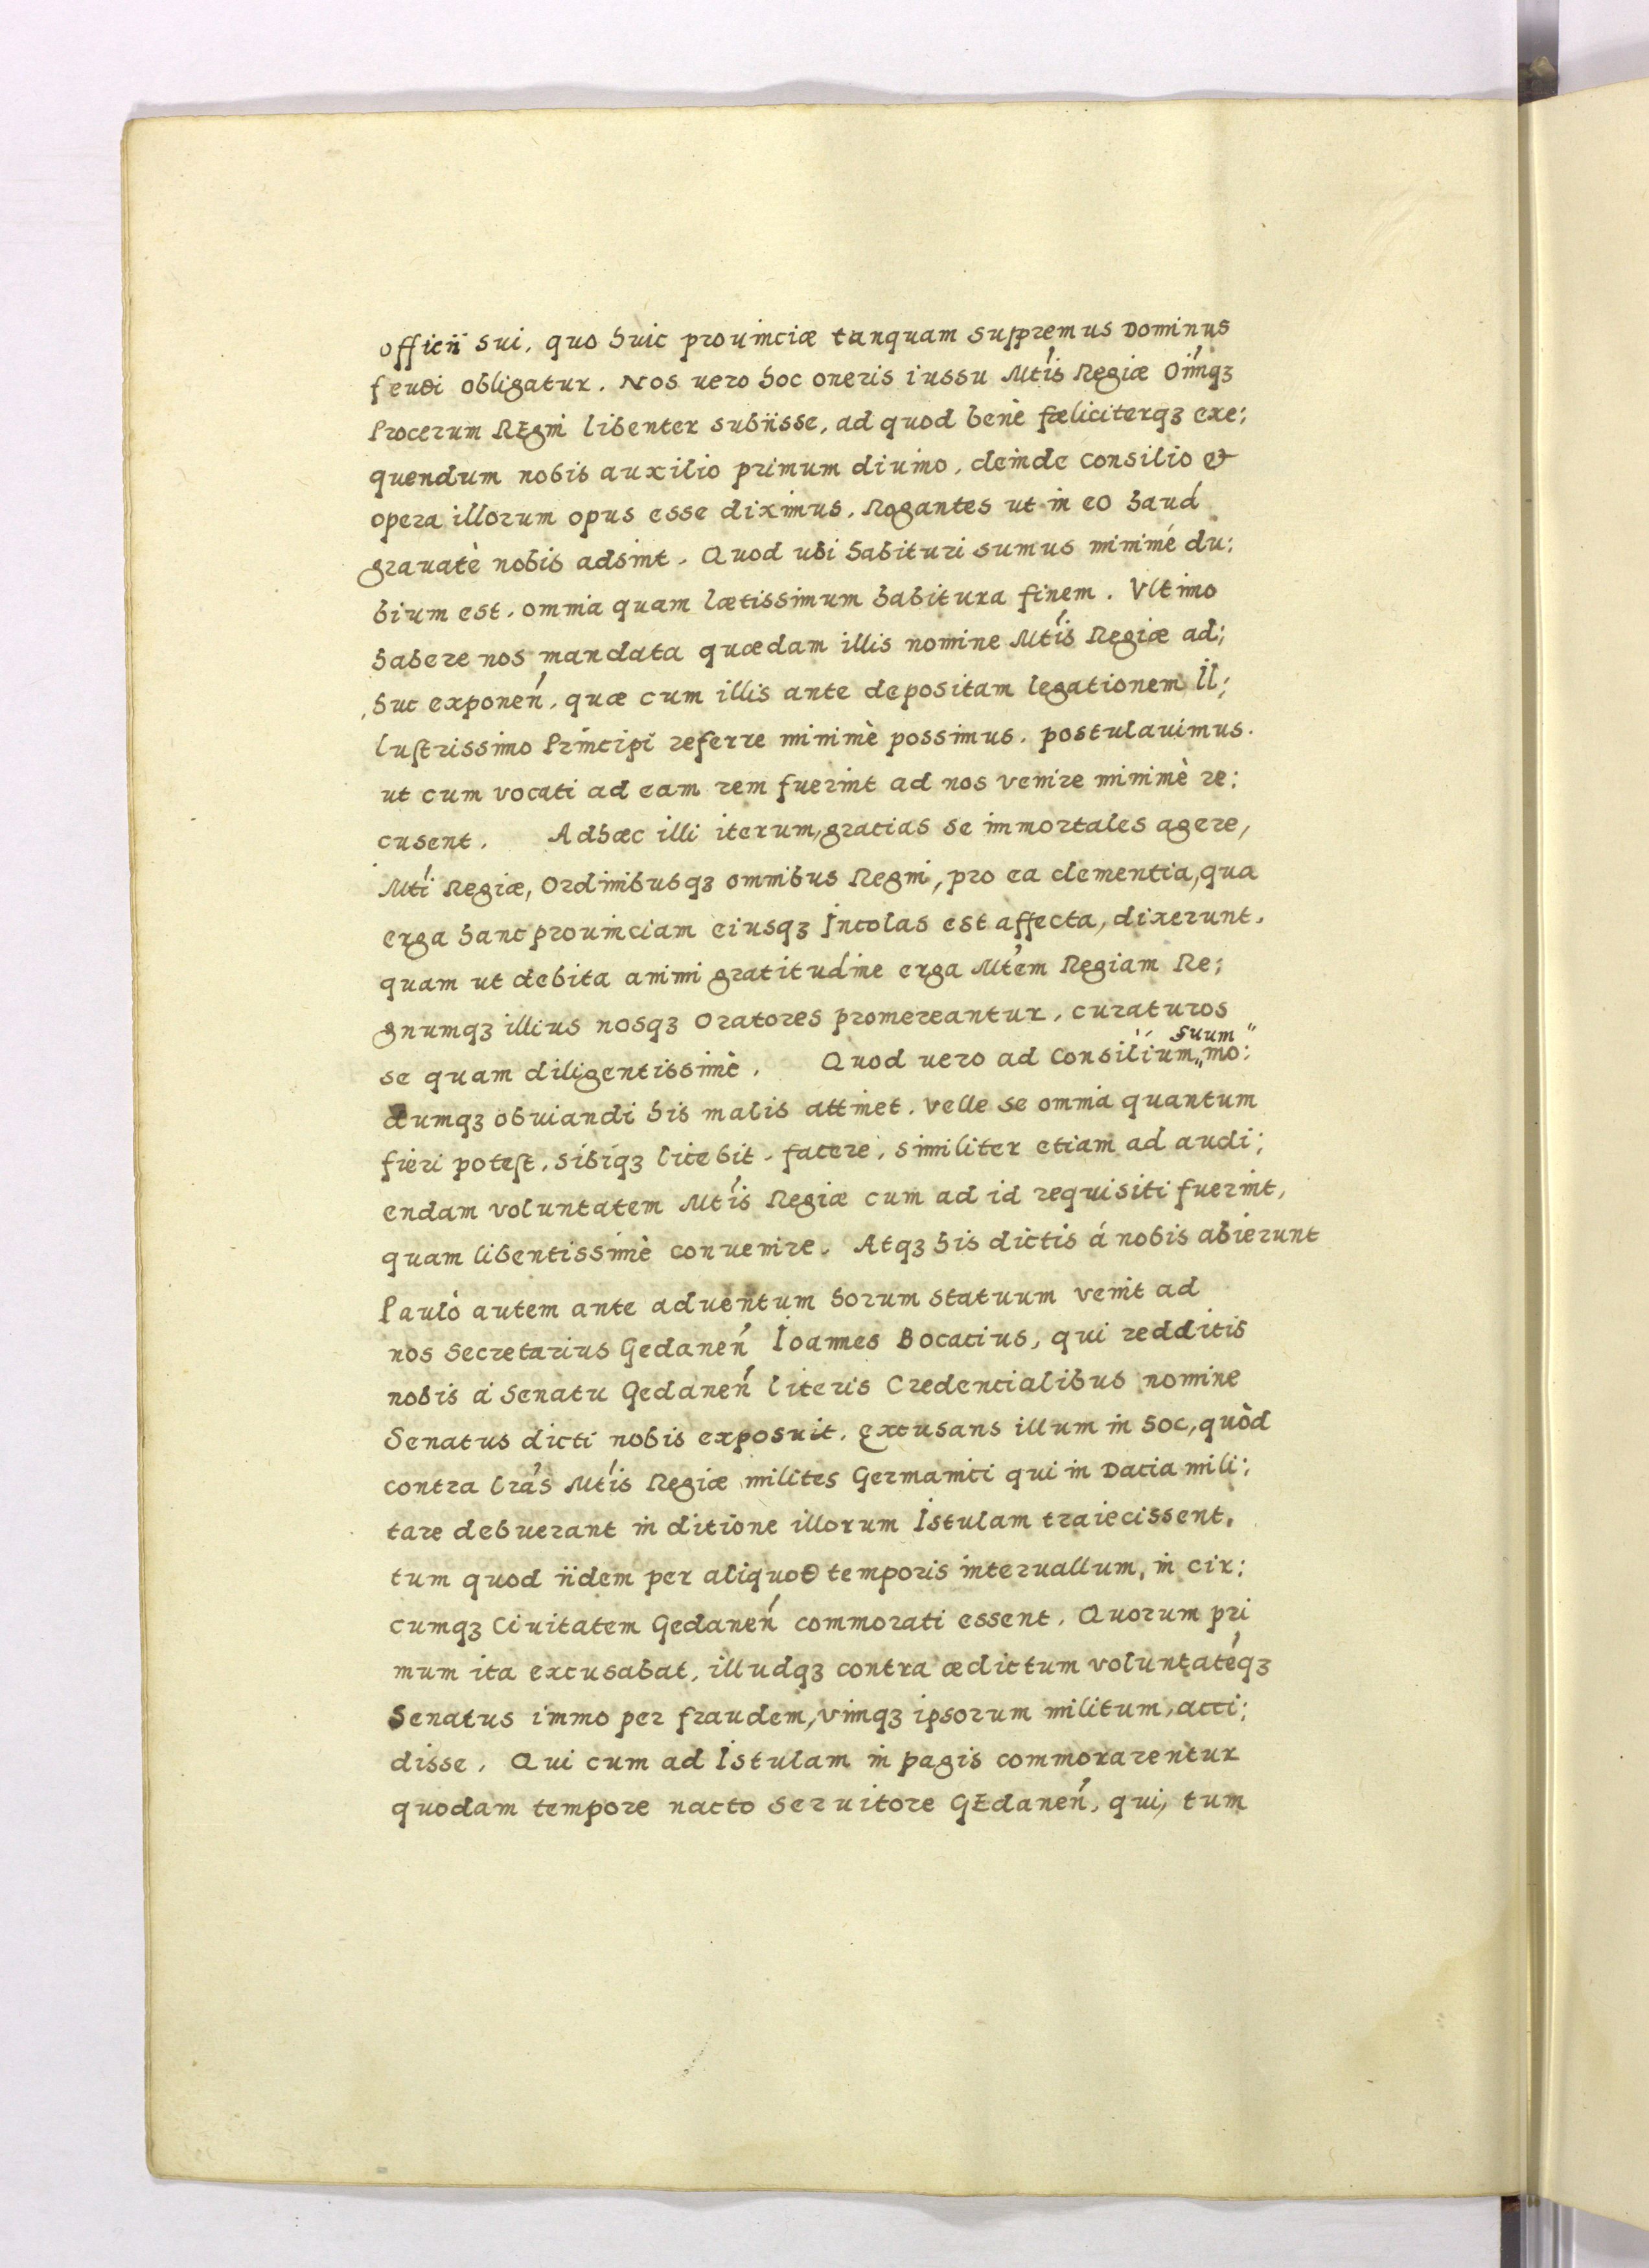 officii sui, quo huic prouinciæ tanquam suppremus Dominus
feudi obligatur. Nos uero hoc oneris iussu Mtis Regiæ Oimqȝ
Procerum REgni libenter subiisse, ad quod benè fæliciterqȝ exe:
quendum nobis auxilio primum diuino, deinde consilio &
opera illorum opus esse diximus. Rogantes ut in eo haud
grauatè nobis adsint. Quod ubi habituri sumus minimé du:
bium est, omnia quam lætissimum habitura finem. Vltimo
habere nos mandata quædam illis nomine Mtis Regiæ ad:
huc exponeń, quæ cum illis ante depositam legationem Il:
lustrissimo Principi referre minimè possimus. postulauimus.
ut cum vocati ad eam rem fuerint ad nos venire minimè re:
cusent. Adhæc illi iterum, gratias se immortales agere,
Mti Regiæ, Ordinibusqȝ omnibus Regni, pro ea clementia, qua
erga hanc prouinciam eiusqȝ Incolas est affecta, dixerunt.
quam ut debita animi gratitudine erga Mtem Regiam Re:
gnumqȝ illius nosqȝ Oratores promereantur, curaturos
se quam diligentissimè. Quod uero ad Consilium suum mo:
dumqȝ obuiandi his malis attinet. velle se omnia quantum
fieri potest, sibiqȝ licebit, facere, similiter etiam ad audi:
endam voluntatem Mtis Regiæ cum ad id requisiti fuerint,
quam libentissimè conuenire. Atqȝ his dictis á nobis abierunt
Paulò autem ante aduentum horum statuum venit ad
nos Secretarius Gedaneń Ioannes Bocatius, qui redditis
nobis á Senatu Gedaneń literis Credencialibus nomine
Senatus dicti nobis exposuit. Excusans illum in hoc, quòd
contra lrás Mtis Regiæ milites Germanici qui in Dacia mili:
tare debuerant in ditione illorum Istulam traiecissent,
tum quod iidem per aliquod temporis interuallum, in cir:
cumqȝ Ciuitatem Gedaneń commorati essent. Quorum pri
mum ita excusabat, illudqȝ contra ædictum voluntatéqȝ
Senatus immo per fraudem, vimqȝ ipsorum militum, acci:
disse. Qui cum ad Istulam in pagis commorarentur
quodam tempore nacto seruitore GEdaneń, qui, tum